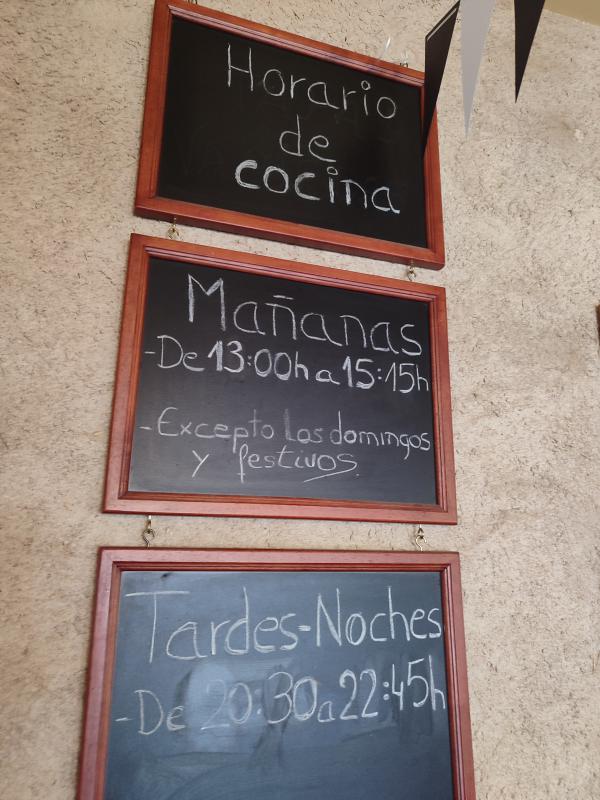 Horario
de
cocina
Mañanas
-De 13:00h a 15:15h
-Excepto los domingos
y festivos.
Tardes-Noches
-De 20:30 a 22:45h